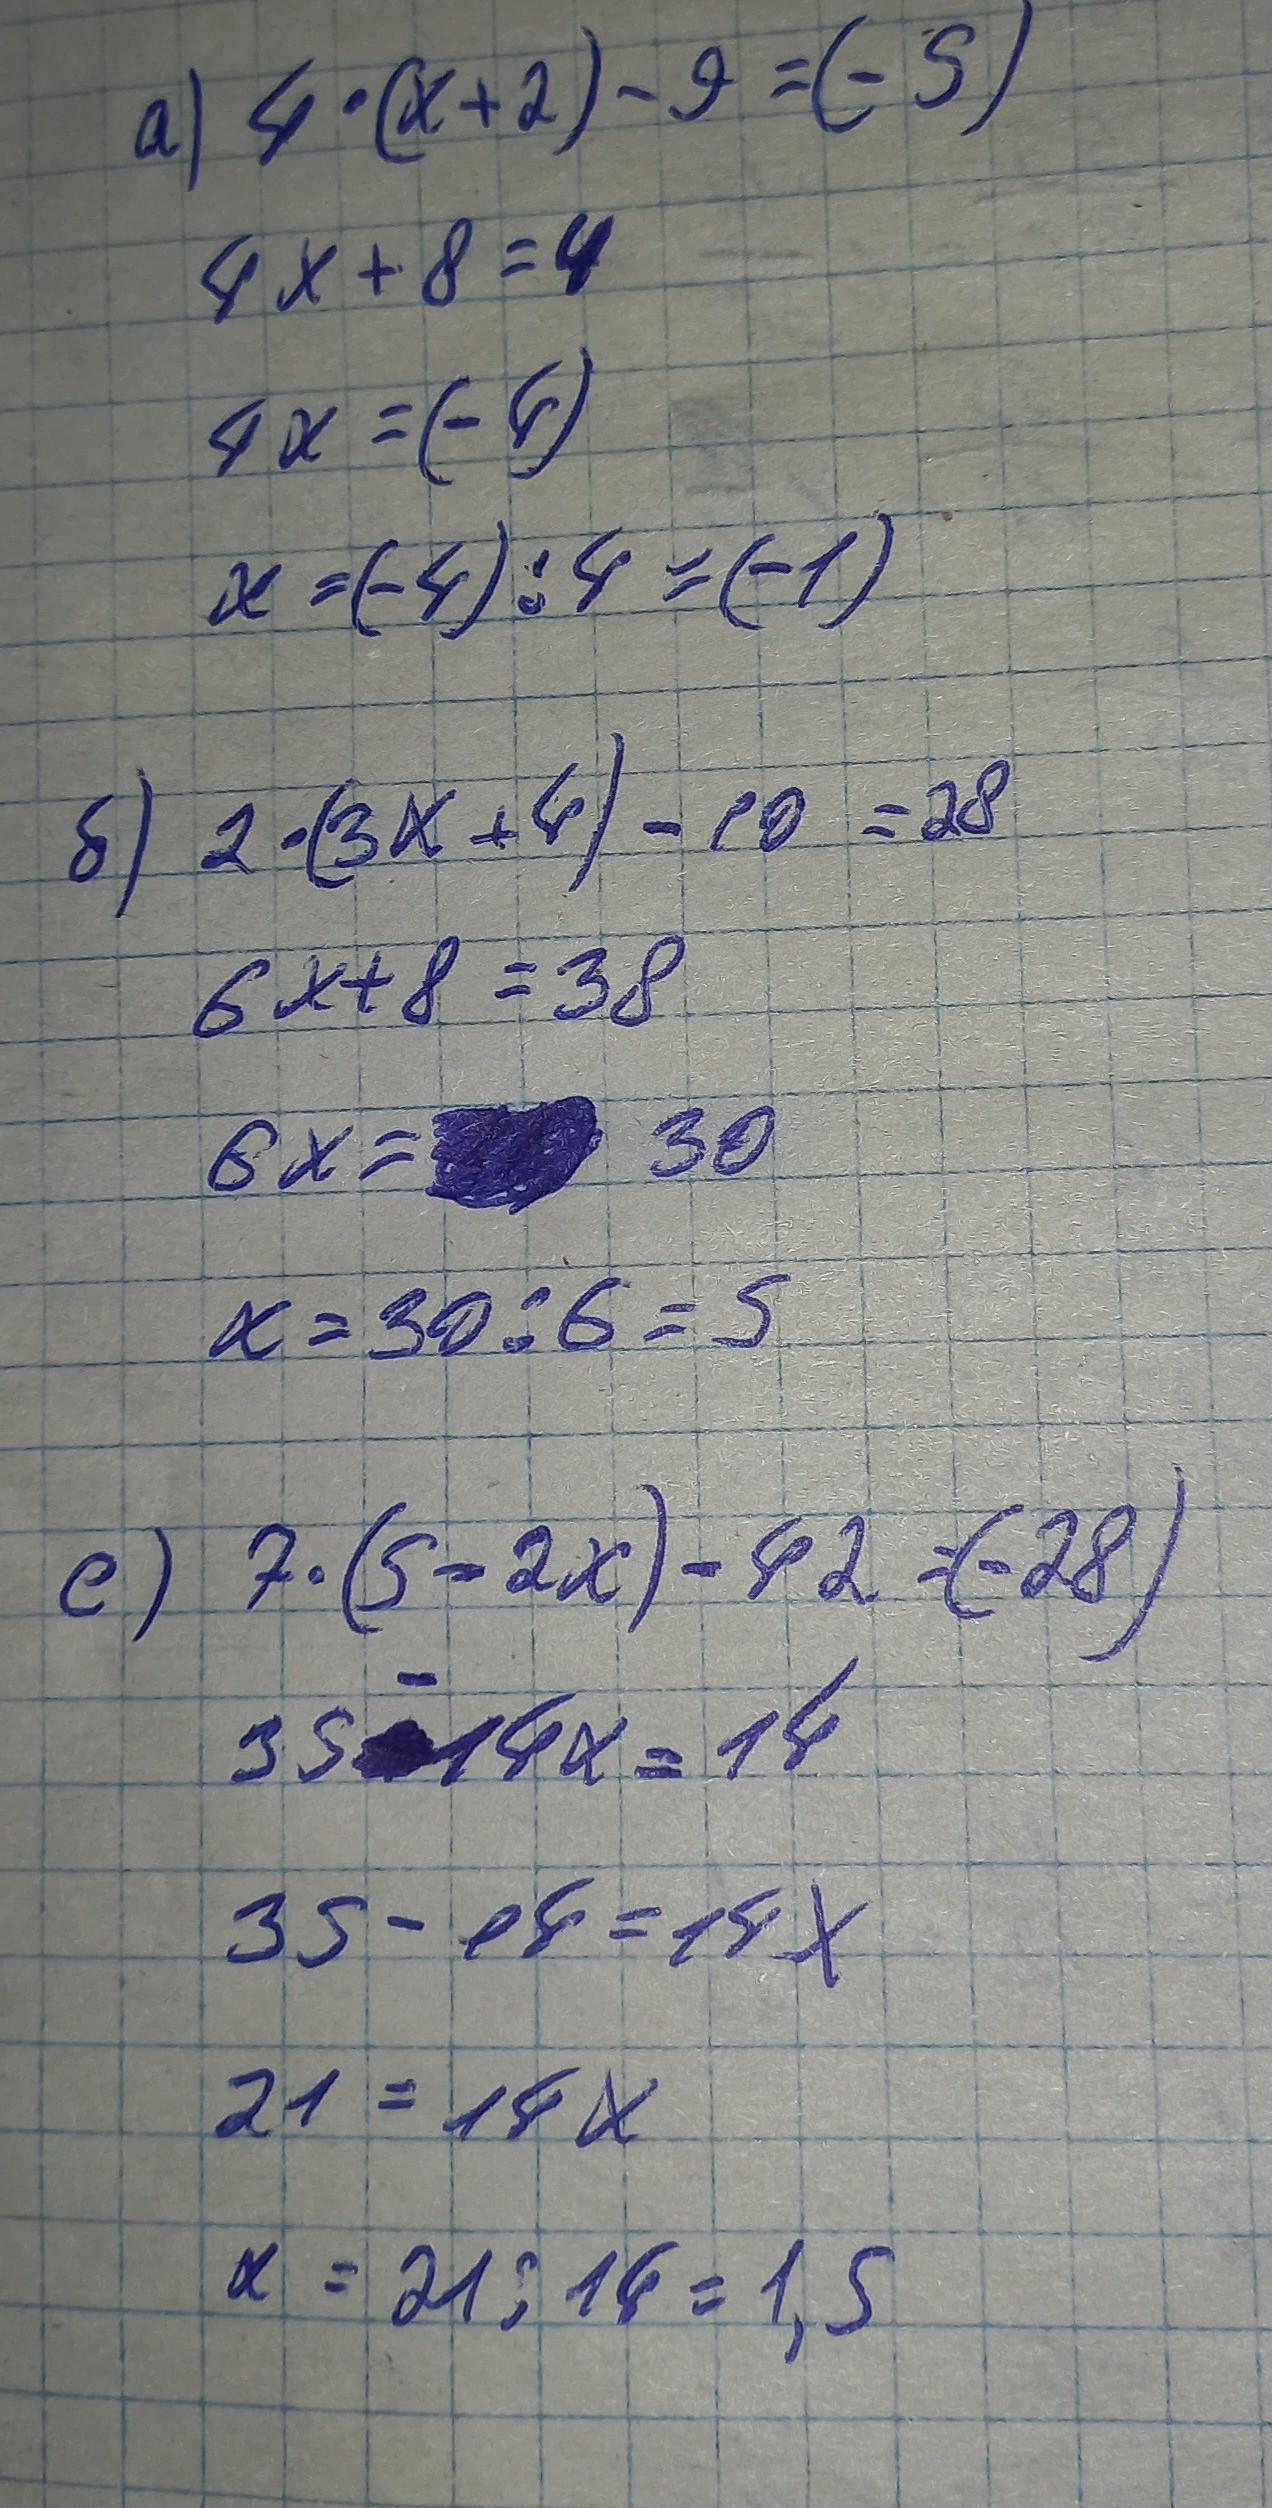 а) 4·(x+2)-9=(-5)
4x+8=4
4x=(-4)
x=(-4):4=(-1)
б) 2·(3x+4)-10=28
6x+8=38
6x= 30
x=30:6=5
е) 7·(5-2x)-42=(-28)
35-14x=14
35-14=14x
21=14x
x=21:14=1,5